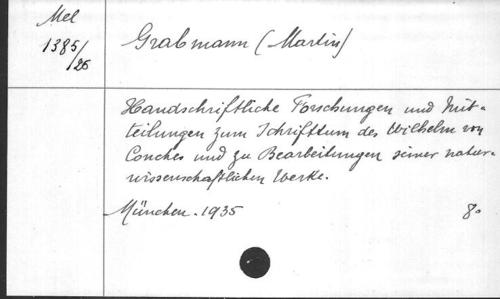 Mel
1385/26
Grabmann (Martin)
Handschriftliche Forschungen und Mit-
teilungen zum Schrifttum des Wilhelm von
Conches und zu Bearbeitungen seiner natur-
wissenschaftlichen Werke.
München. 1935
8°